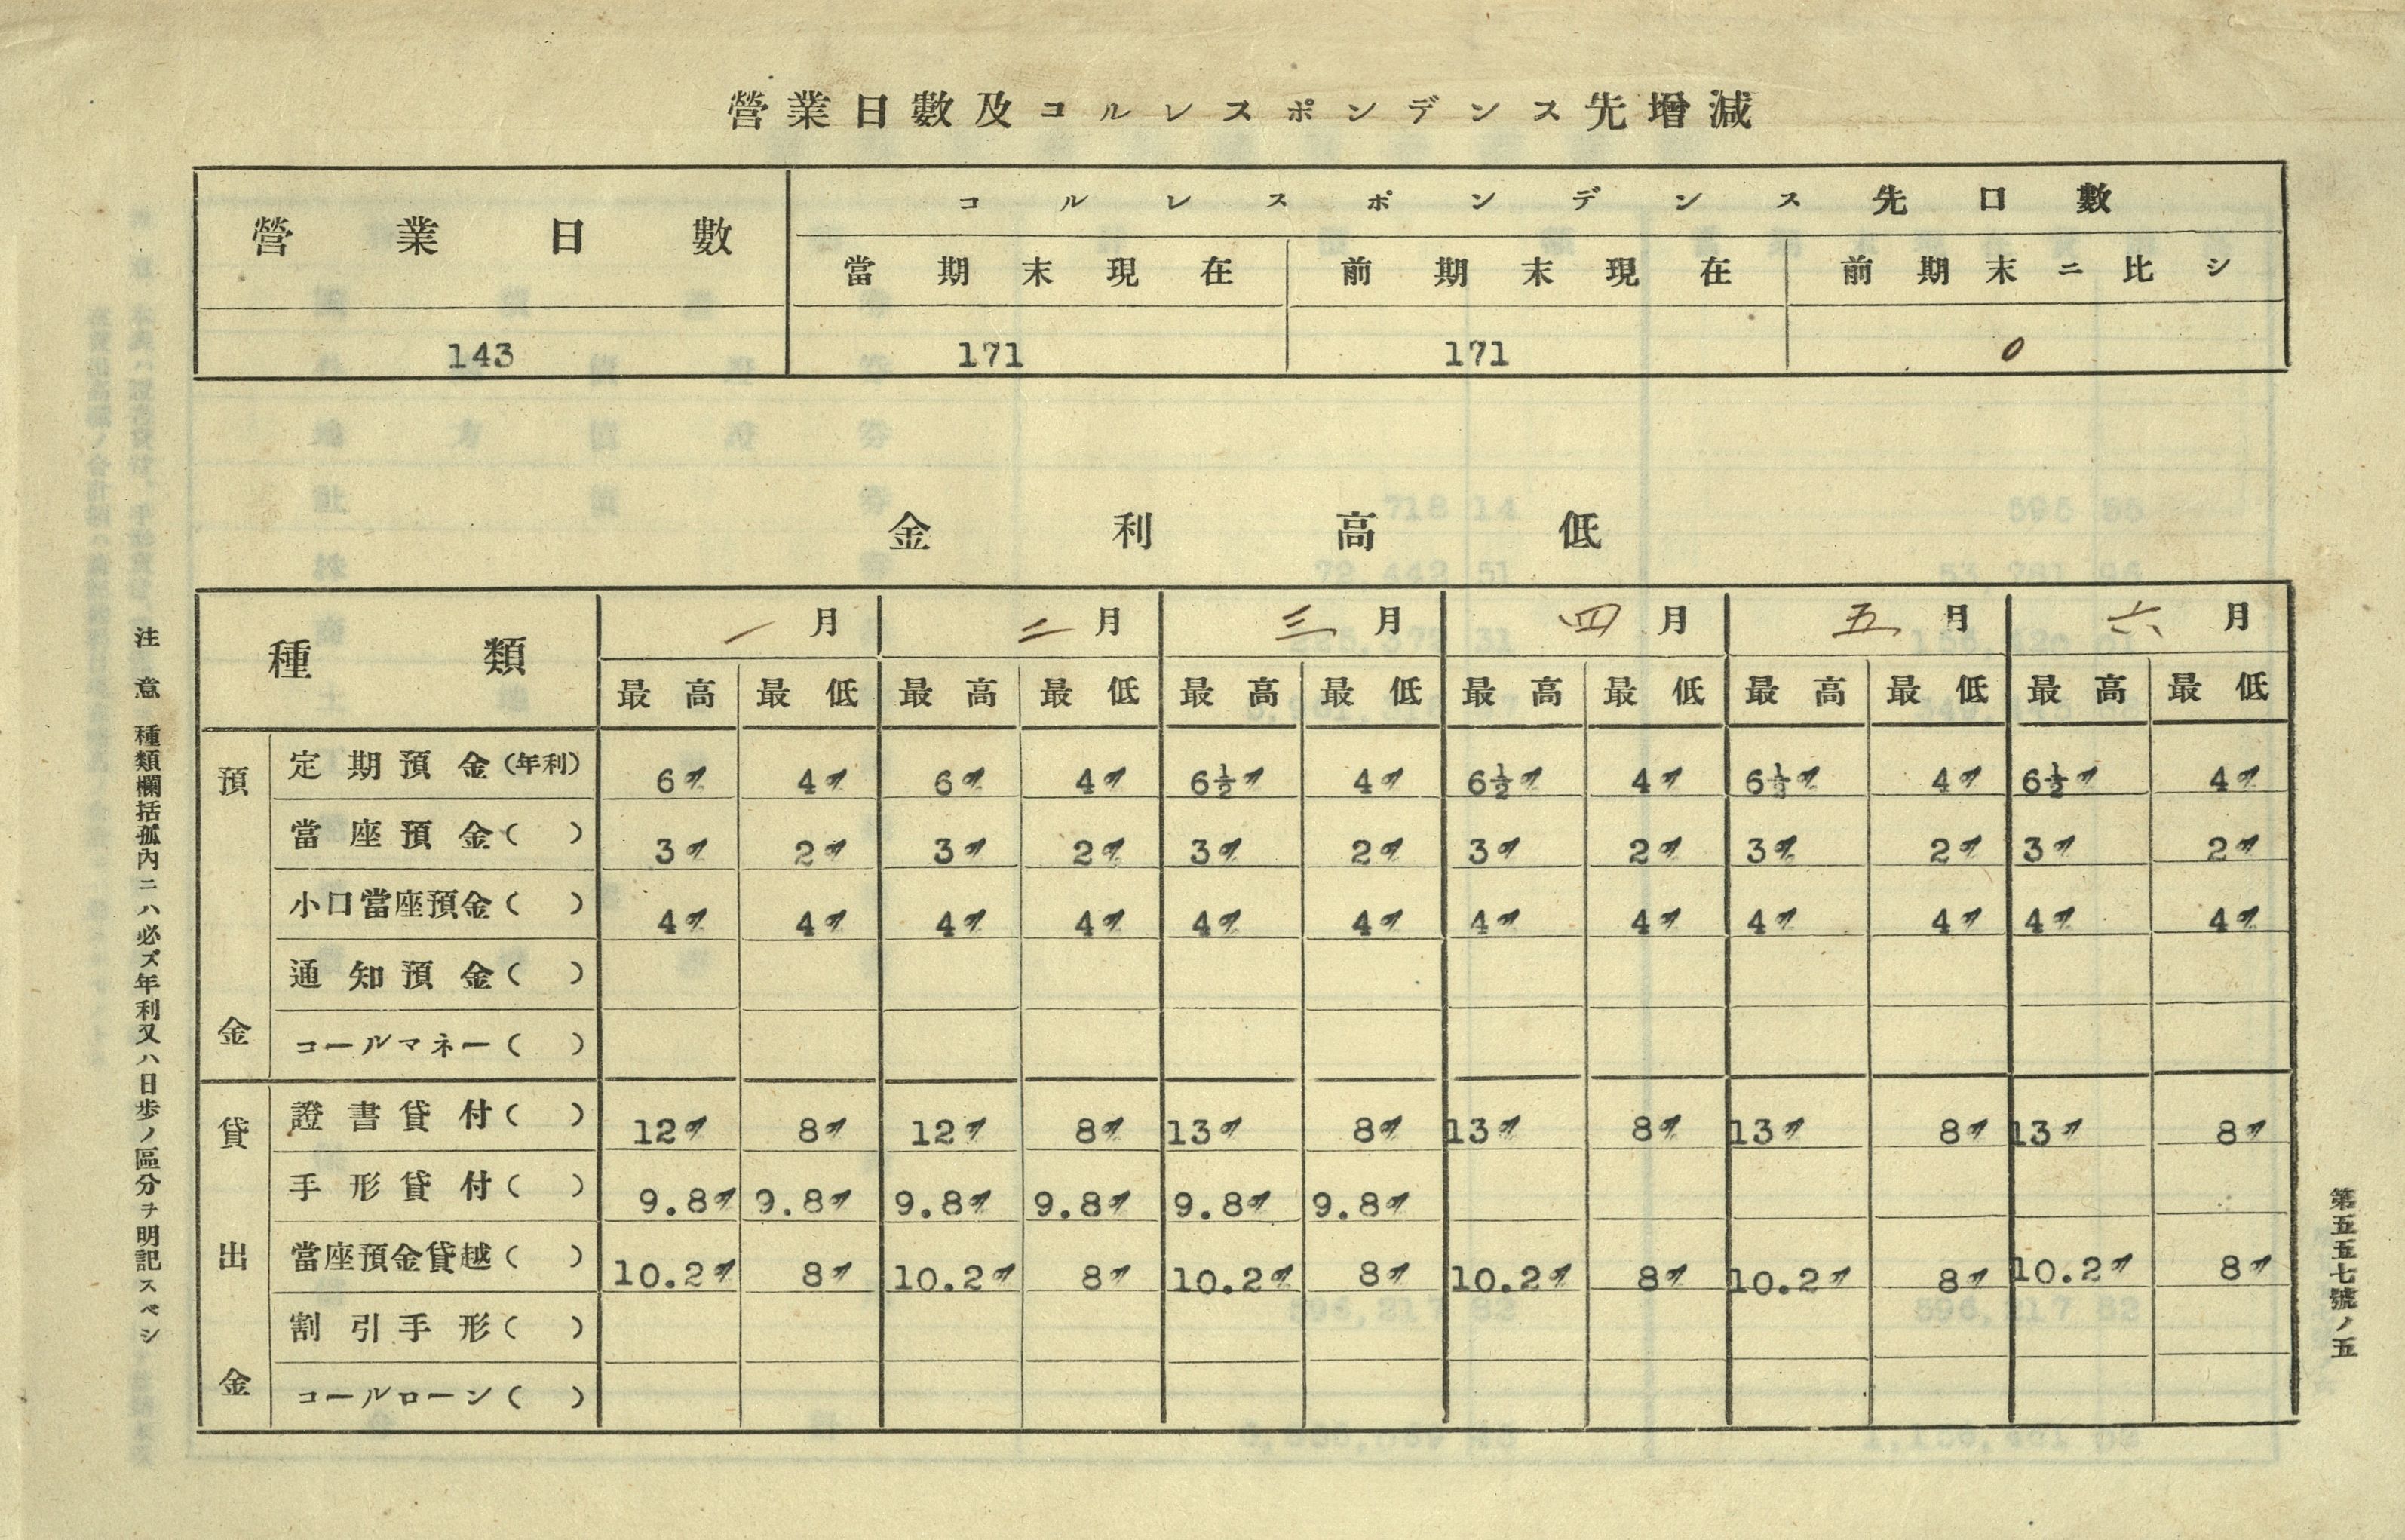 營業日數及コルレスポンデンス先增減
營業日數 コルレスポンデンス先口數
當期末現在 前期末現在 前期末ニ比シ
143 171 171 0
金利高低
種類 一月 二月 三月 四月 五月 六月
最高 最低 最高 最低 最高 最低 最高 最低 最高 最低 最高 最低
預金
定期預金(年利) 6% 4% 6% 4% 6½% 4% 6½% 4% 6½% 4% 6½% 4%
當座預金( ) 3% 2% 3% 2% 3% 2% 3% 2% 3% 2% 3% 2%
小口當座預金( ) 4% 4% 4% 4% 4% 4% 4% 4% 4% 4% 4% 4%
通知預金( )
コールマネー( )
貸出金
證書貸付( ) 12% 8% 12% 8% 13% 8% 13% 8% 13% 8% 13% 8%
手形貸付( ) 9.8% 9.8% 9.8% 9.8% 9.8% 9.8%
當座預金貸越( ) 10.2% 8% 10.2% 8% 10.2% 8% 10.2% 8% 10.2% 8% 10.2% 8%
割引手形( )
コールローン( )
注意 種類欄括孤內ニハ必ズ年利又ハ日步ノ區分ヲ明記スベシ
第五五七號ノ五